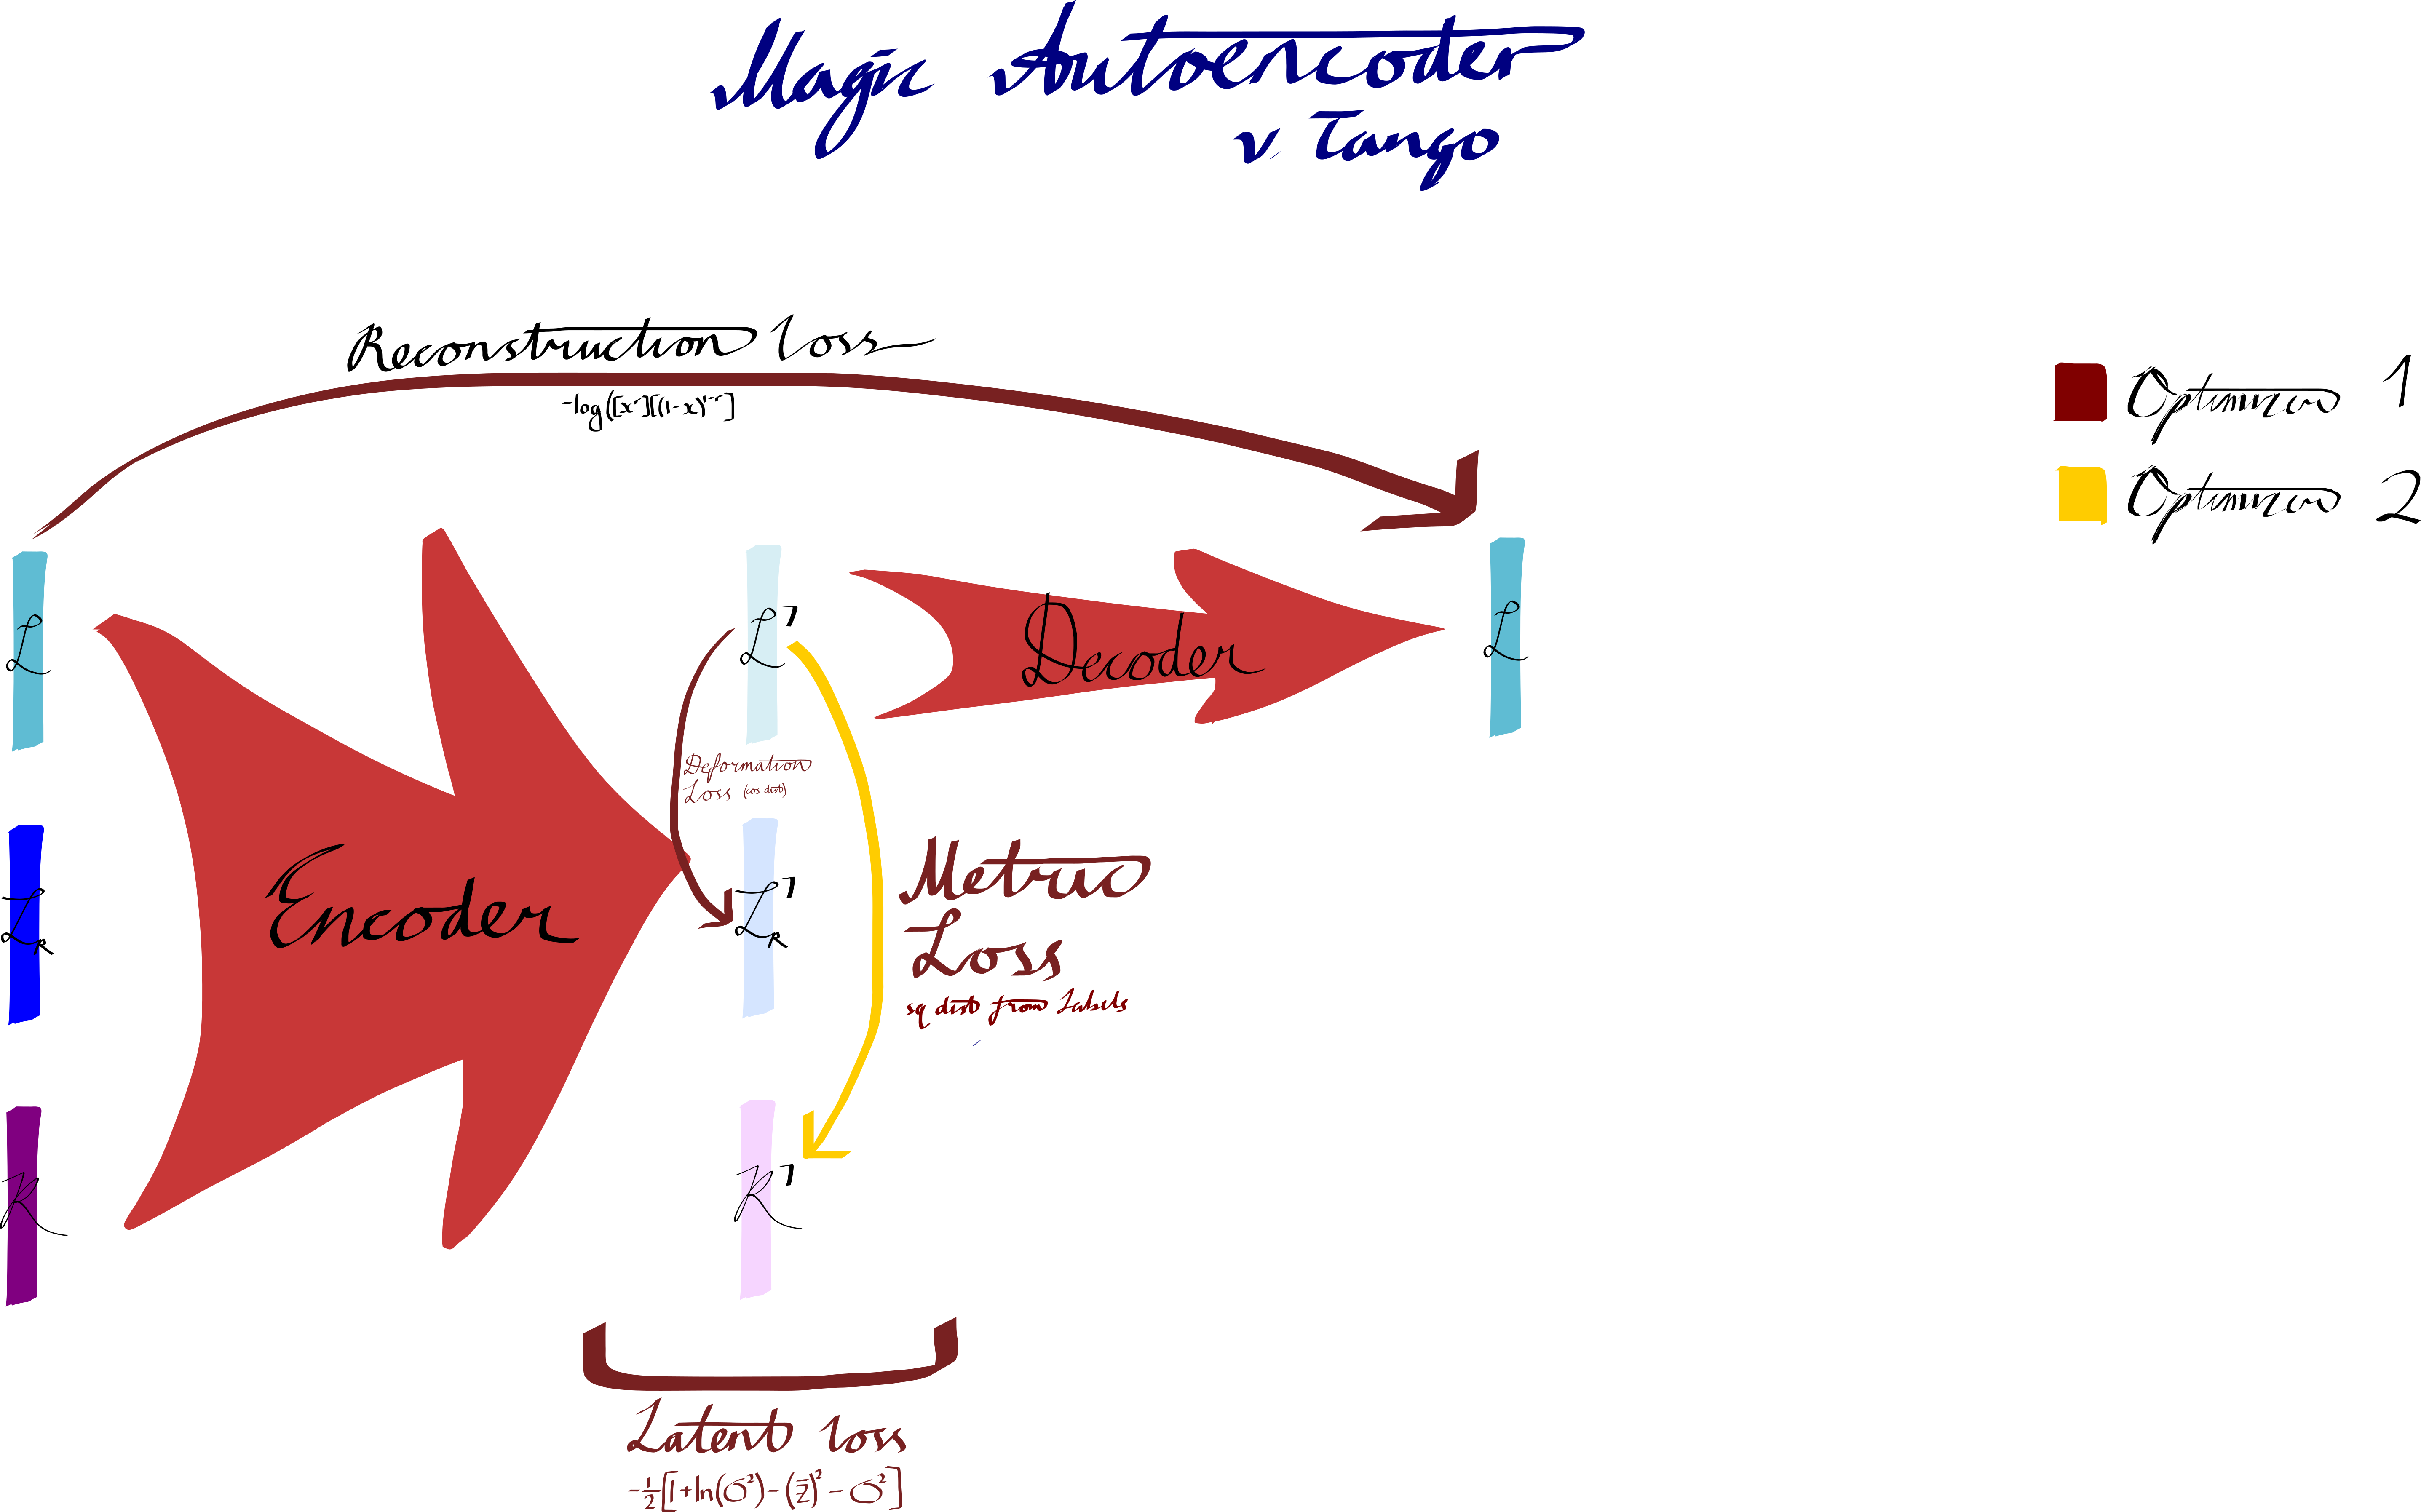 Magic Autoencoder
v. Tango
Reconstruction loss
-log([xʳ][(1-x)¹⁻ʳ]
Optimizer 1
Optimizer 2
L
L'
Decoder
L
Deformation
Loss (cos dist)
Encoder
L_R
L'_R
Metric
Loss
sq dist from Labels
R
R'
Latent loss
-½[1+ln(σ²)-(z̄)²-σ²]